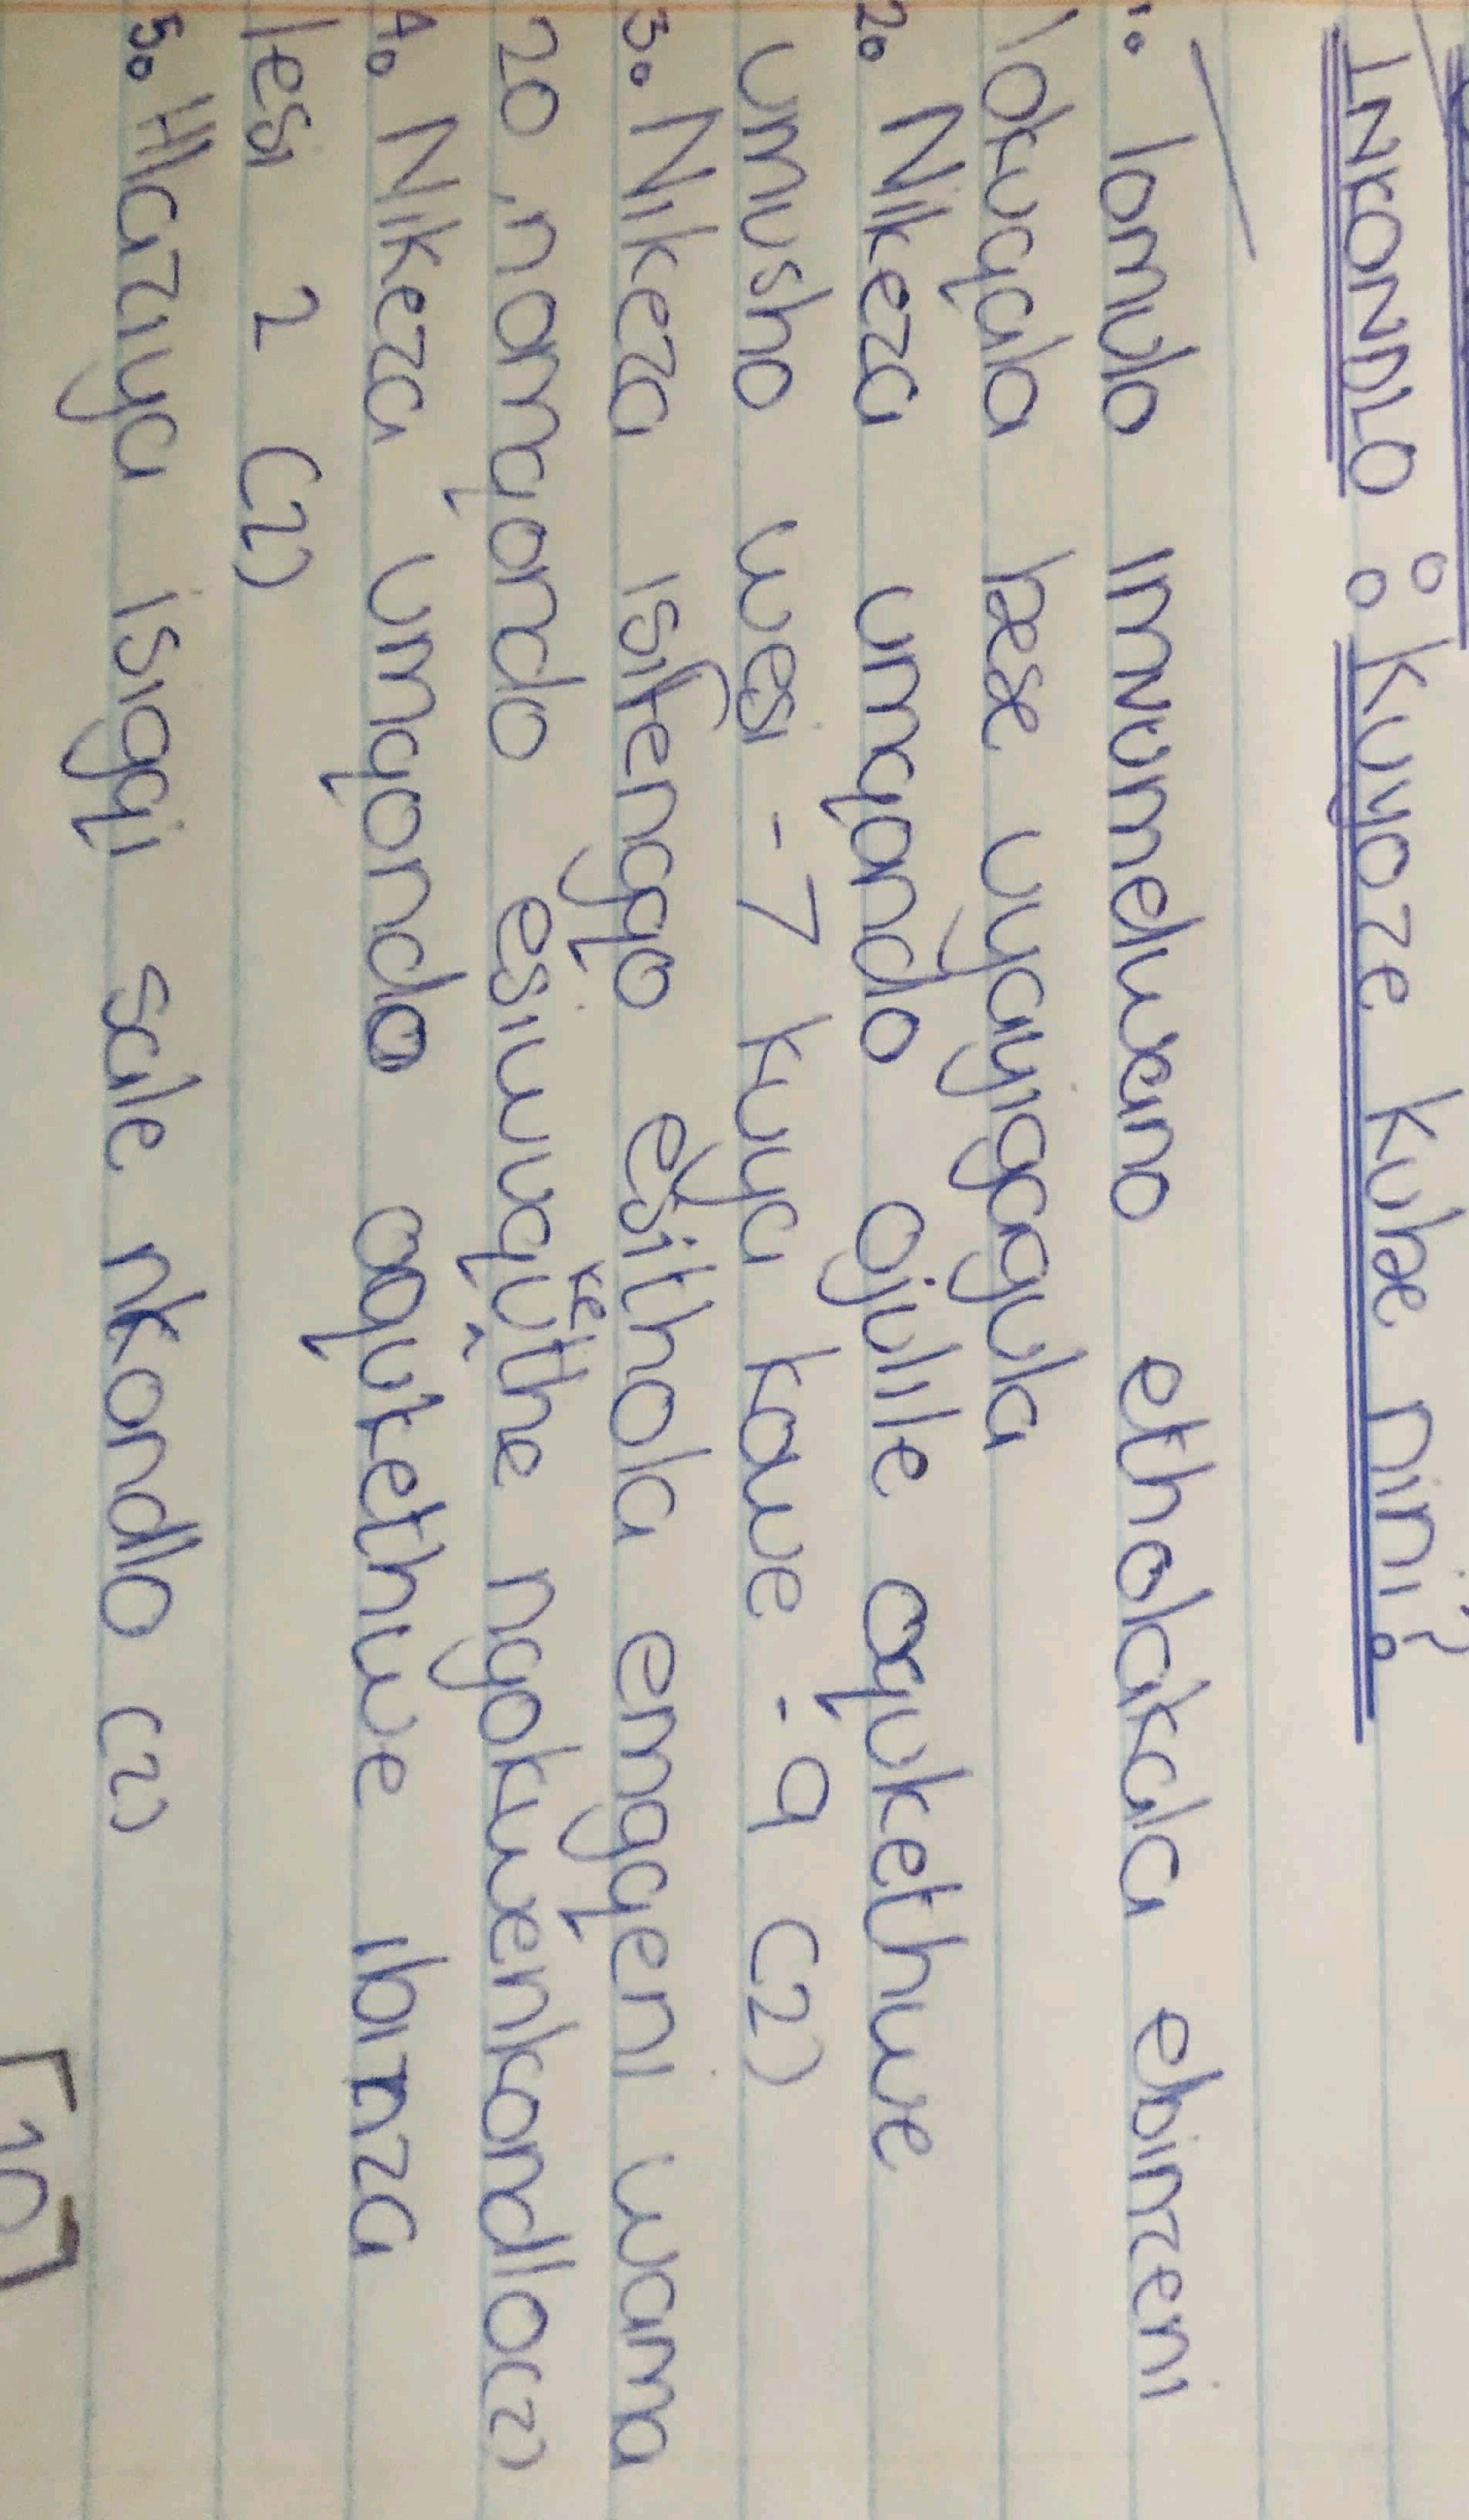 INKONDLO : Kuyoze kube nini?
1. Iomula imvumelwano etholakala ebinzeni
lokuqala bese uyayigagula
2. Nikeza umqondo ojulile oqukethwe
umusho wesi -7 kuya kowe -9 (2)
3. Nikeza isifengqo esithola emqgeni wama
20 ,nomqondo esiwuqukethe ngokwenkondlo(2)
4. Nikeza umqondo oqukethwe ibinza
lesi 2 (2)
5. Hlaziya isigqi sale nkondlo (2)
[10]